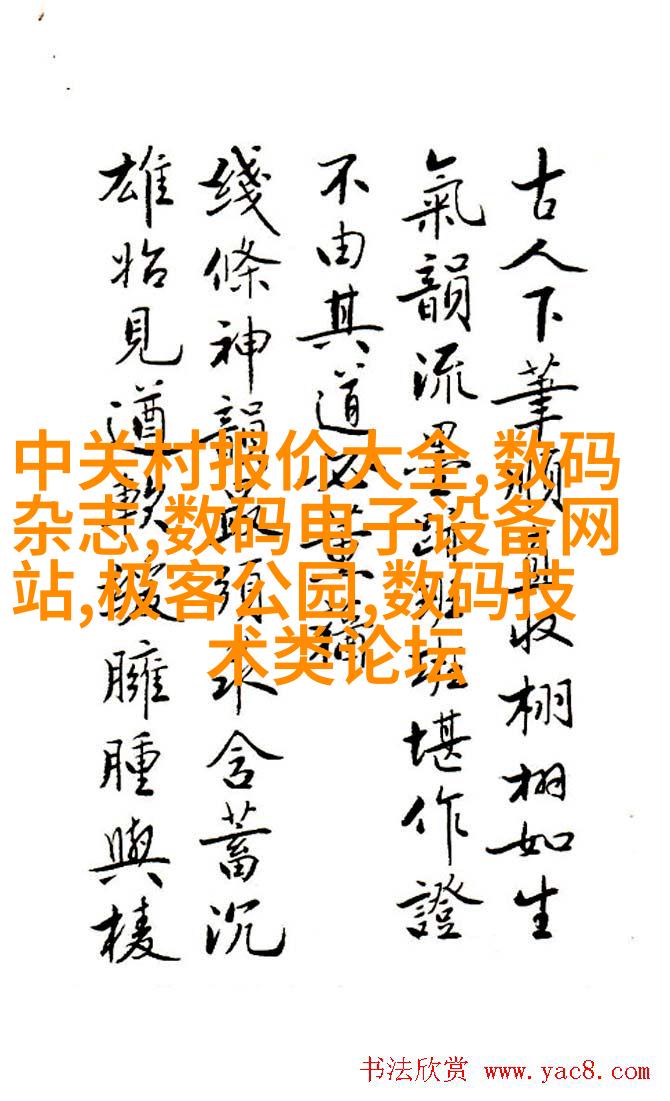 古人下筆收栩栩如生
氣韻流墨跡斑斑堪作證
不由其道必
綫條神韻最須求含蓄沉
雄始見遒臃腫與棱
中关村报价大全,数码
杂志,数码电子设备网
站,极客公园,数码技
术类论坛
书法欣赏 www.yac8.com